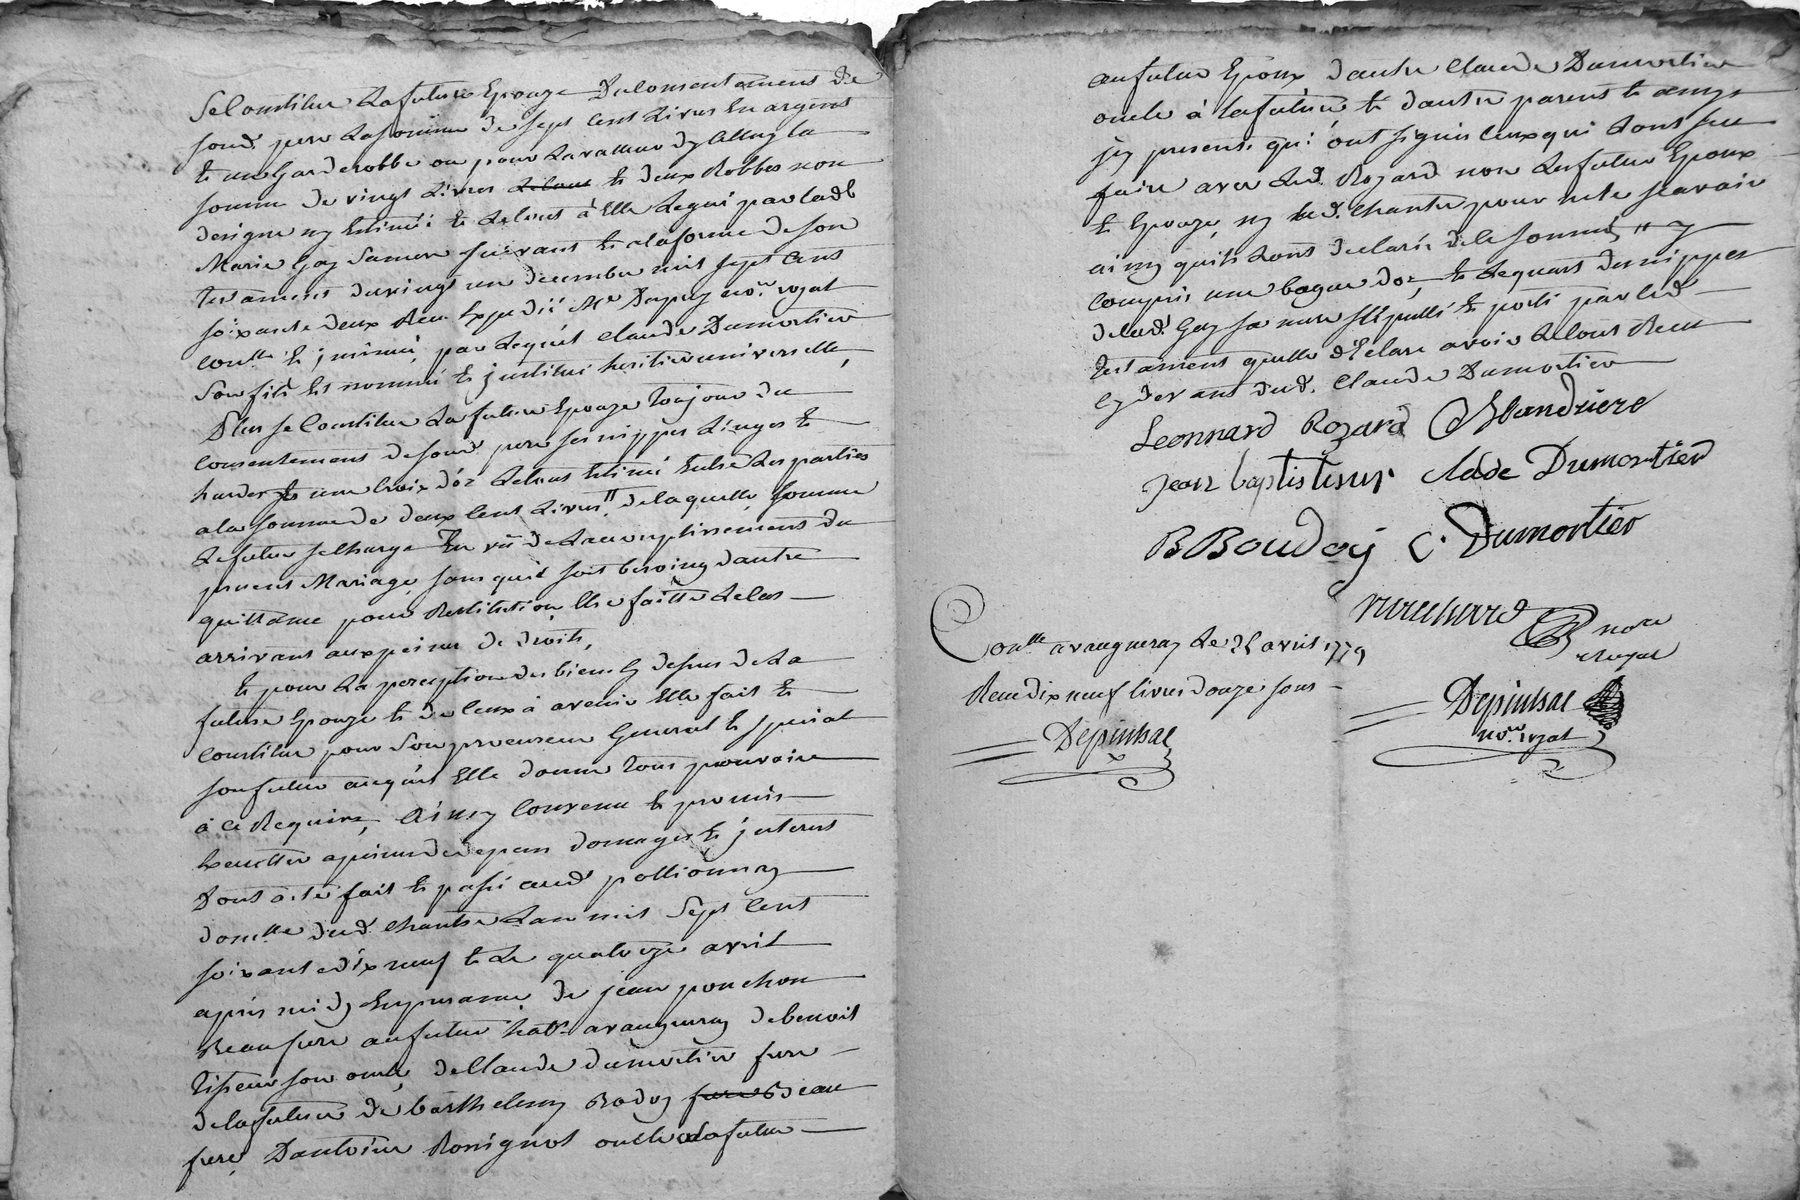 Se Constitue La future Epouze Du Consentement de
sond. pere La somme de sept Cent Livres En argent
Et un Garderobbe ou pour La valleur dy Celluy la
somme de vingt Livres Et deux Robbes non
designe ny Estimé: Et Le tout à Elle Legué par lad.
Marie Gay Sa mere suivant Et a la forme de son
Testament du vingt un decembre mil sept Cent
soixante deux Reçu Expedié Me Dupuy nore. royal
Conlle. Et jnsinué, par Lequel Claude Dumortier
Son fils Est nommé Et jnstitué heritier universelle,
Plus se Constitue La future Epouze Toujour du
Consentement de sond. pere ses nippes Linges Et
hardes Et une Croix d'or Le tout Estimé Entre Les parties
a la somme de deux Cent Livres, de laquelle somme
Le futur se Charge En vû de L'accomplissement du
present Mariage, sans qu'il soit besoing dautre
quittance pour Restitution Etre faitte Le Cas
arrivant aux peines de droits,
Et pour La perception des biens Cy dessus de La
future Epouze Et de Ceux à avenir Elle fait Et
Constitue pour Son procureur General Et special
son futur auquel Elle donne Tout pouvoir
à Ce Require, Ainsy Convenu Et promis
Executter a peine de depens domages Et jnterest
Dont acte fait Et passé aud. pollionnay
domlle dud. Chantre L'an mil Sept Cent
soixante dix neuf Et Le quatorze avril
après midy En presance de jean ponchon
Beau frere au futur habt. a vaugneray de benoit
Tisseur son oncle, de Claude dumortier frere
de la future de barthelemy Boduy Beau
frere, D'antoine Rossignol oncle
au futur Epoux d'autre Claude Dumortier
oncle à La future Et d'autre parens Et amys
jcy presents qui ont signés Ceux qui L'ont sçu
faire avec Led. Rozard non Les futur Epoux
Et Epouze, ny Led. Chantre pour ne le scavoir
ainsy quils L'ont declaré de Ce sommés
Compris une bague d'or, Et Le quart des nippes
de lad. Gay sa mere stipullé Et porté par led.
Testament qu'elle déClare avoir Le tout Reçu
Cy devant dud. Claude Dumortier
Leonnard Rozard Blandriere
Jean baptis tisseur Clade Dumortier
B Bouduy C. Dumortier
nore
Royal
Conlle a vaugneray Le 26 avril 1779
Reçu dix neuf livres douze sous
Depinhac
Depinhac
nore. royal